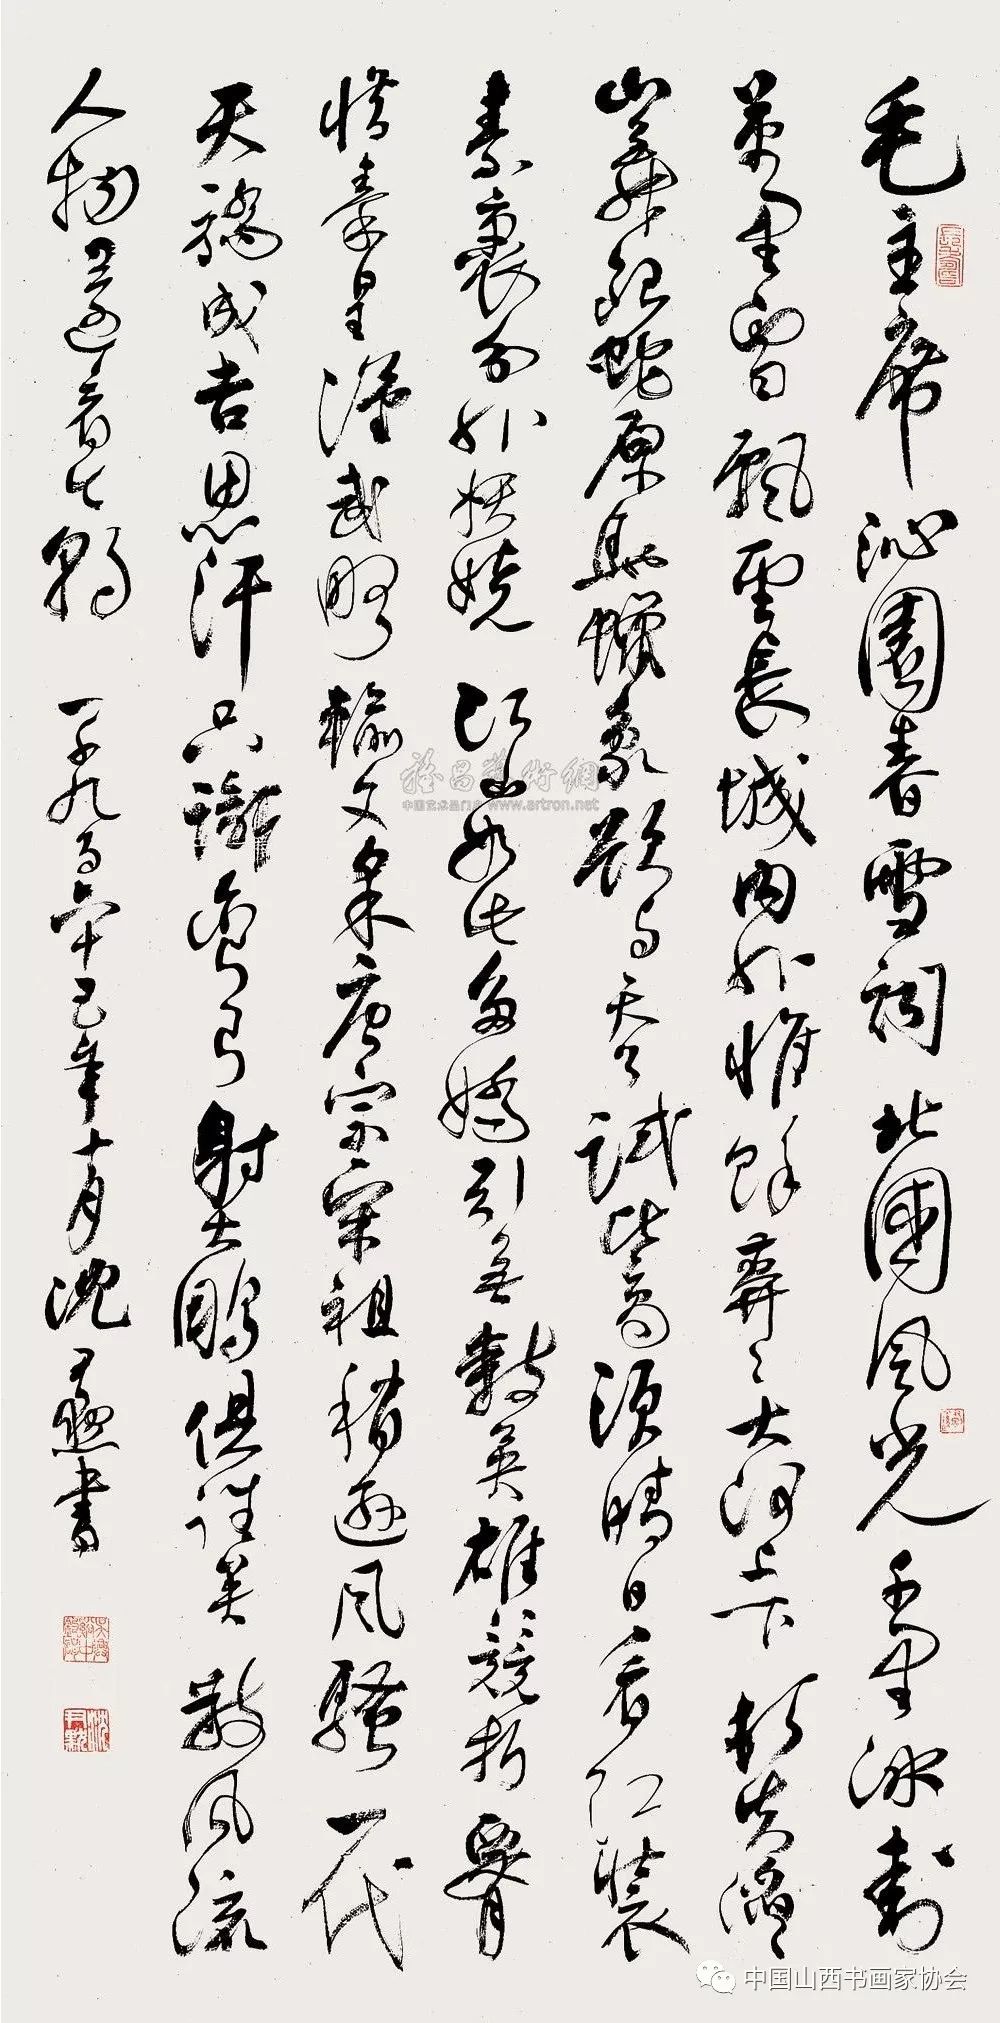 毛主席沁園春雪詞北國風光千里冰封
萬里雪飄望長城內外惟餘莽〻大河上下頓失滔〻
山舞銀蛇原馳蠟象欲與天公試比高須晴日看紅裝
素裹分外妖嬈江山如此多嬌引無數英雄競折腰
惜秦皇漢武略輸文采唐宗宋祖稍遜風騷一代
天驕成吉思汗只識彎弓射大鵰俱往矣數風流
人物還看今朝一千九百六十五年十月沈尹默書
雅昌藝術網
中国艺术品门户 www.artron.net
中国山西书画家协会